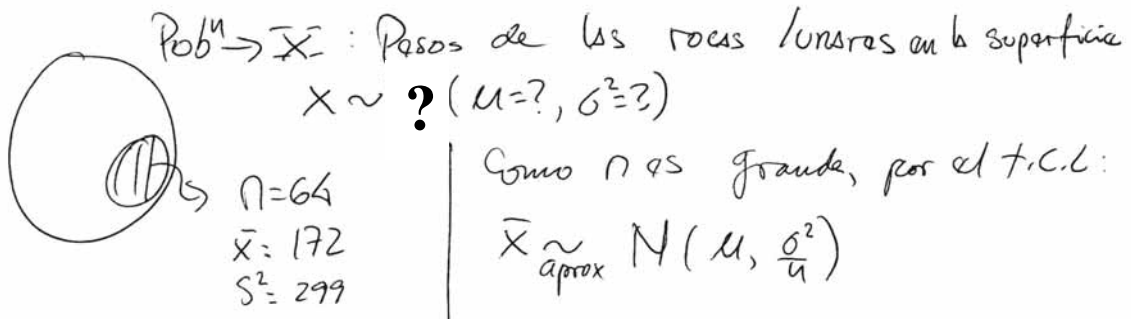 Pobⁿ → X : Pesos de las rocas lunares en la superficie
X ~ ? (μ=?, σ²=?)
n=64
x̄: 172
S²: 299
Como n es grande, por el t.C.L:
X̄ ~ aprox N(μ, σ²/n)